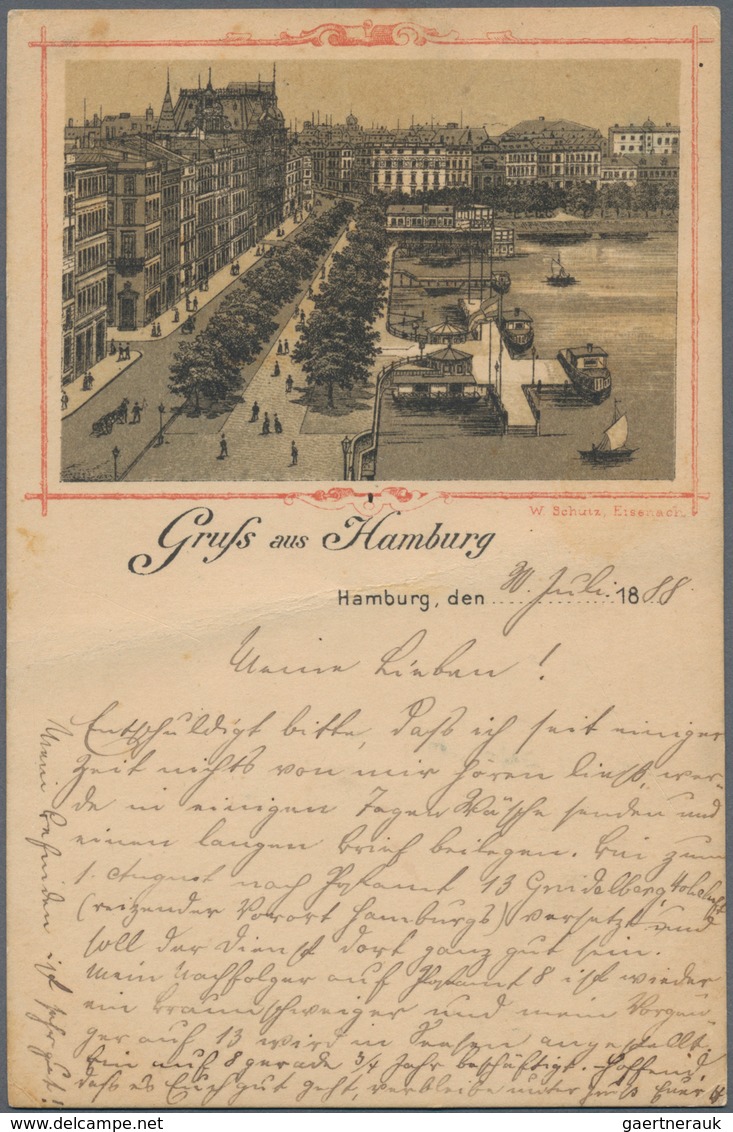 W. Schütz, Eisenach.
Gruss aus Hamburg
Hamburg, den 30. Juli 1888
Meine Lieben!
Entschuldigt bitte, daß ich seit einiger
Zeit nichts von mir hören ließ, wer-
de in einigen Tagen Wäsche senden und
einen langen Brief beilegen. Bin zum
1. August nach Postamt 13
(reizender Vorort Hamburgs) versetzt und
soll der Dienst dort ganz gut sein.
Mein Nachfolger auf Postamt 8 ist wieder
ein Braunschweiger und mein Vorgän-
ger auf 13 wird in Seesen angestellt.
Bin auf 8 gerade 3/4 Jahr beschäftigt. Hoffend,
daß es Euch gut geht, verbleibe unter Gruß Euer
Mein Befinden ist sehr gut!
gaertnerauk